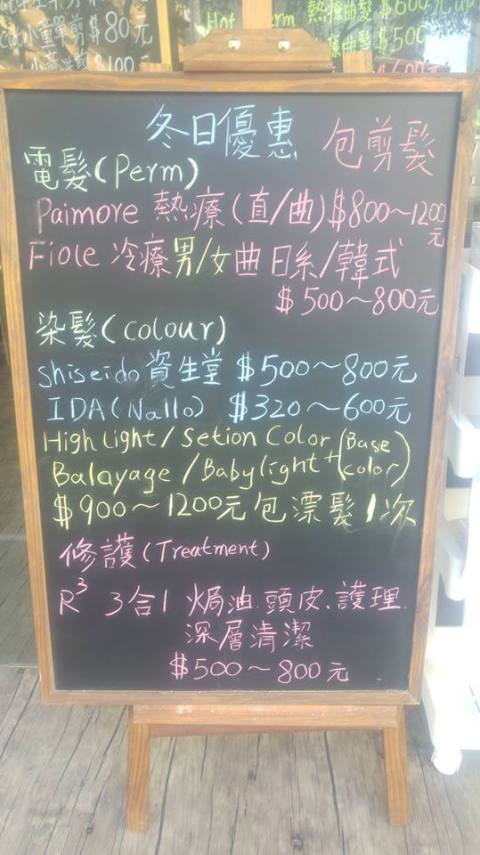 小童單剪$80元
$100元
Hot Perm
熱療曲髮$600元up
曲髮$500
冬日優惠 包剪髮
電髮(Perm)
Paimore 熱療(直/曲)$800~1200元
Fiole 冷療男/女曲 日系/韓式
$500~800元
染髮(colour)
Shiseido 資生堂 $500~800元
IDA(Nallo) $320~600元
High light/Setion Color
Balayage/Babylight+(Base color)
$900~1200元包漂髮1次
修護(Treatment)
R³ 3合1 焗油.頭皮.護理.
深層清潔
$500~800元